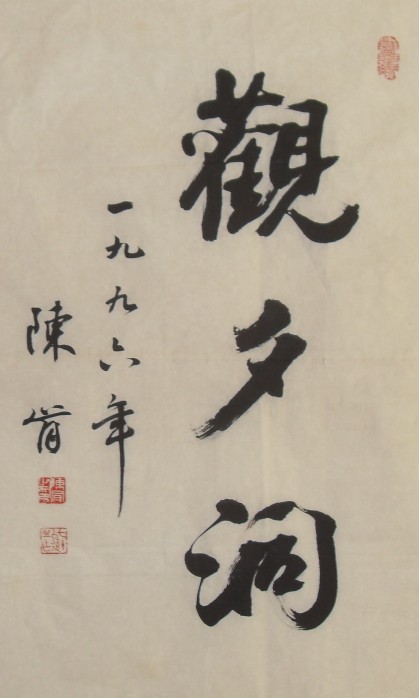 觀夕洞
一九九六年
陳